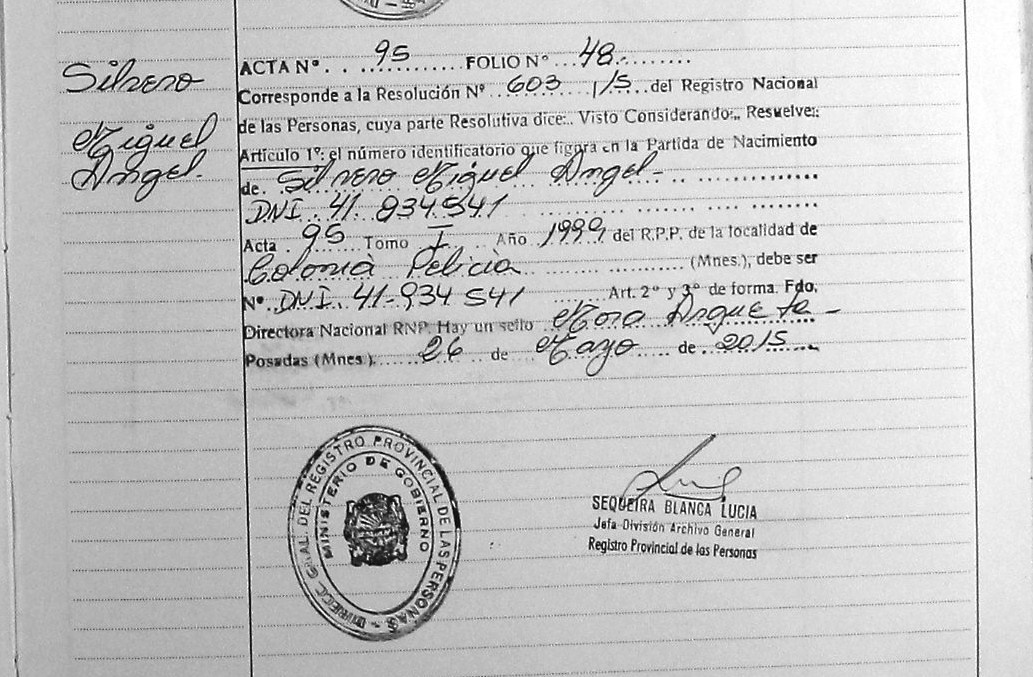 Silvero
Miguel
Angel.
ACTA Nº. . 95 .......... FOLIO Nº ... 48 ..........
Corresponde a la Resolución Nº .. 603 .... /15 ... del Registro Nacional
de las Personas, cuya parte Resolutiva dice:.. Visto Considerando:.. Resuelve:
Artículo 1º: el número identificatorio que figura en la Partida de Nacimiento
de. Silvero Miguel Angel -
DNI. 41. 934541
Acta . 95 Tomo I .. Año 1999 del R.P.P. de la localidad de
Colonia Delicia ............ (Mnes.), debe ser
Nº. DNI. 41-934 541 ........ Art. 2º y 3º de forma. Fdo.
Directora Nacional RNP. Hay un sello ... Mora Argueta -
Posadas (Mnes.)...... 26 ... de .. Mayo .... de .. 2015 ....
DIRECC. GRAL. DEL REGISTRO PROVINCIAL DE LAS PERSONAS -
MINISTERIO DE GOBIERNO
SEQUEIRA BLANCA LUCIA
Jefa División Archivo General
Registro Provincial de las Personas